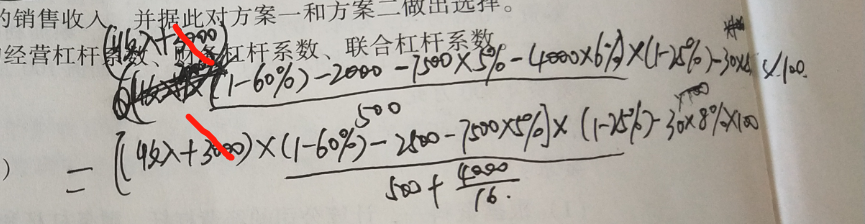 的销售收入,并据此对方案一和方案二做出选择。
经营杠杆系数、财务杠杆系数、联合杠杆系数。
(收入+3000)
(1-60%)-2000-7500×5%-4000×6%]×(1-25%)-30×8 ×100
500
=[(收入+3000)×(1-60%)-2500-7500×5%]×(1-25%)-30×8%×100
500+4000/16.
)